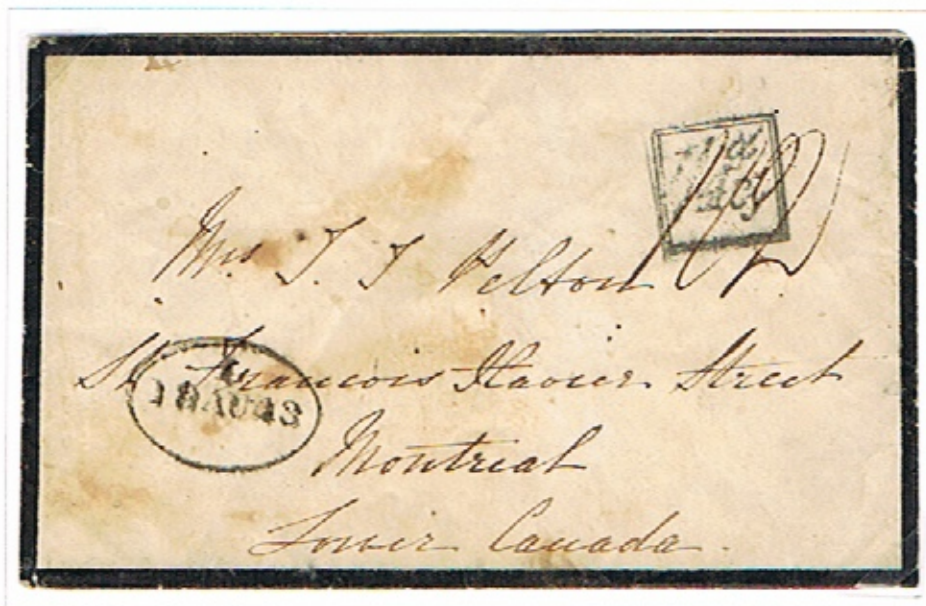 Mrs J. J Pelton
St. Francois Xavier Street
18 AU 43
Montreal
Lower Canada.